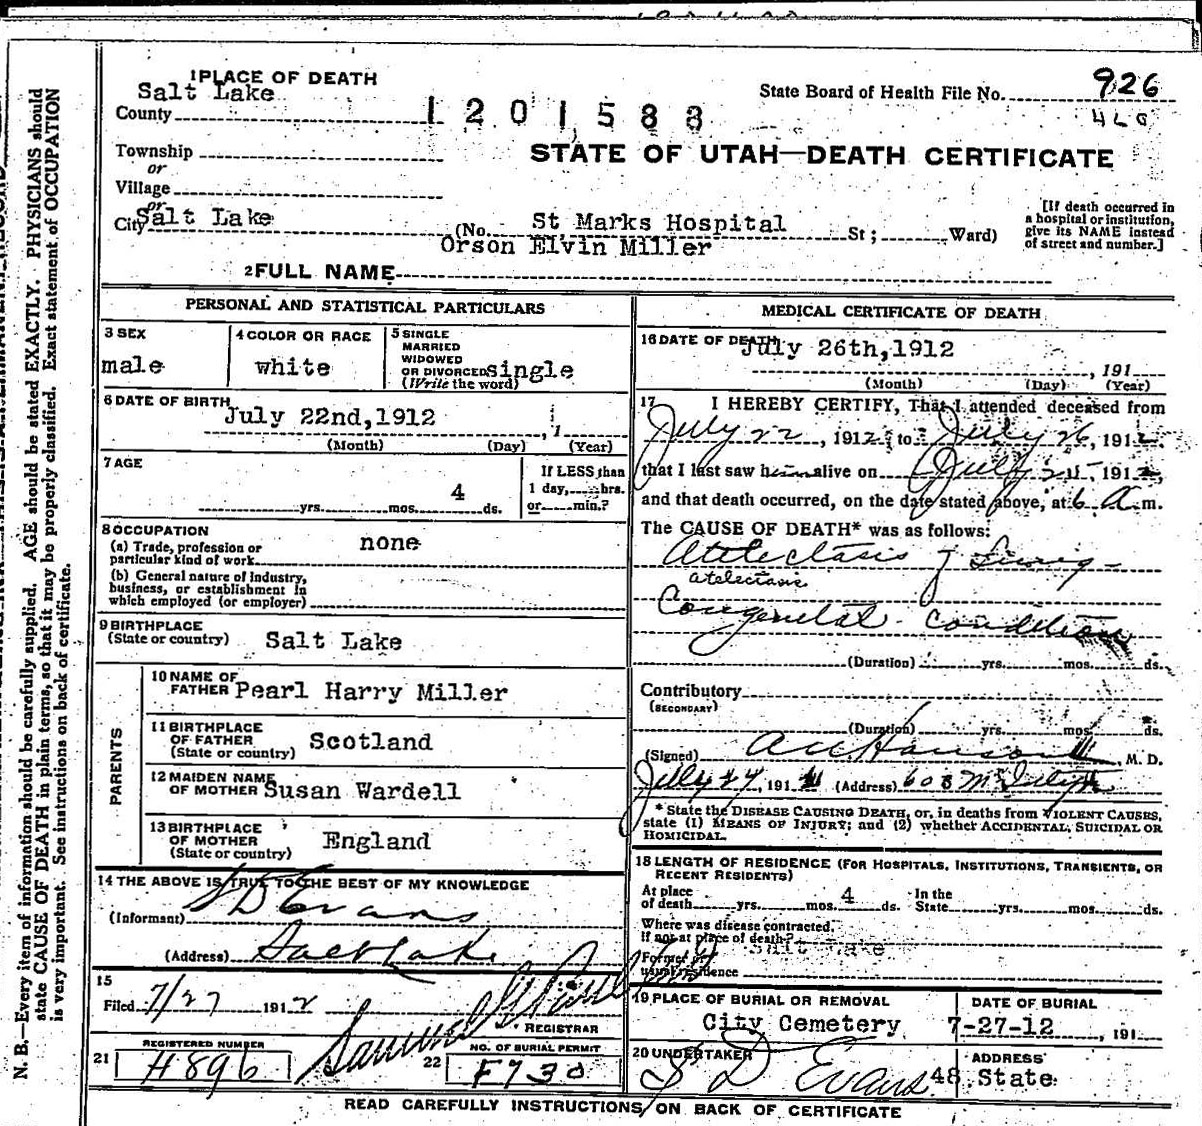 1 PLACE OF DEATH
State Board of Health File No. 926
County Salt Lake
1201588
Township
or
STATE OF UTAH—DEATH CERTIFICATE
Village
or
City Salt Lake (No. St Marks Hospital St; Ward)
[If death occurred in a hospital or institution, give its NAME instead of street and number.]
2 FULL NAME Orson Elvin Miller
PERSONAL AND STATISTICAL PARTICULARS
3 SEX male
4 COLOR OR RACE white
5 SINGLE MARRIED WIDOWED OR DIVORCED (Write the word) single
6 DATE OF BIRTH July 22nd,1912
(Month) (Day) (Year)
7 AGE yrs. mos. 4 ds.
If LESS than 1 day, hrs. or min.?
8 OCCUPATION none
(a) Trade, profession or particular kind of work
(b) General nature of industry, business, or establishment in which employed (or employer)
9 BIRTHPLACE (State or country) Salt Lake
PARENTS
10 NAME OF FATHER Pearl Harry Miller
11 BIRTHPLACE OF FATHER (State or country) Scotland
12 MAIDEN NAME OF MOTHER Susan Wardell
13 BIRTHPLACE OF MOTHER (State or country) England
14 THE ABOVE IS TRUE TO THE BEST OF MY KNOWLEDGE
(Informant) S D Evans
(Address) Salt Lake
15 Filed 7/27 1912
REGISTRAR
21 REGISTERED NUMBER H896
22 NO. OF BURIAL PERMIT F930
MEDICAL CERTIFICATE OF DEATH
16 DATE OF DEATH July 26th,1912 , 191
(Month) (Day) (Year)
17 I HEREBY CERTIFY, That I attended deceased from
July 22, 1912 to July 26, 1912.
that I last saw him alive on July 25 1912,
and that death occurred, on the date stated above, at 6 a. m.
The CAUSE OF DEATH* was as follows:
Atelectasis of Lung
atelectasis
Congenital condition
(Duration) yrs. mos. ds.
Contributory
(SECONDARY)
(Duration) yrs. mos. ds.
(Signed) M. D.
July 27, 191 (Address) 608
*State the DISEASE CAUSING DEATH, or, in deaths from VIOLENT CAUSES, state (1) MEANS OF INJURY; and (2) whether ACCIDENTAL, SUICIDAL OR HOMICIDAL.
18 LENGTH OF RESIDENCE (FOR HOSPITALS, INSTITUTIONS, TRANSIENTS, OR RECENT RESIDENTS)
At place of death yrs. mos. 4 ds. In the State yrs. mos. ds.
Where was disease contracted, If not at place of death? Salt Lake
Former or usual residence
19 PLACE OF BURIAL OR REMOVAL City Cemetery
DATE OF BURIAL 7-27-12 , 191
20 UNDERTAKER S D Evans
ADDRESS 48 State
READ CAREFULLY INSTRUCTIONS ON BACK OF CERTIFICATE
N. B.—Every item of information should be carefully supplied. AGE should be stated EXACTLY. PHYSICIANS should
state CAUSE OF DEATH in plain terms, so that it may be properly classified. Exact statement of OCCUPATION
is very important. See instructions on back of certificate.